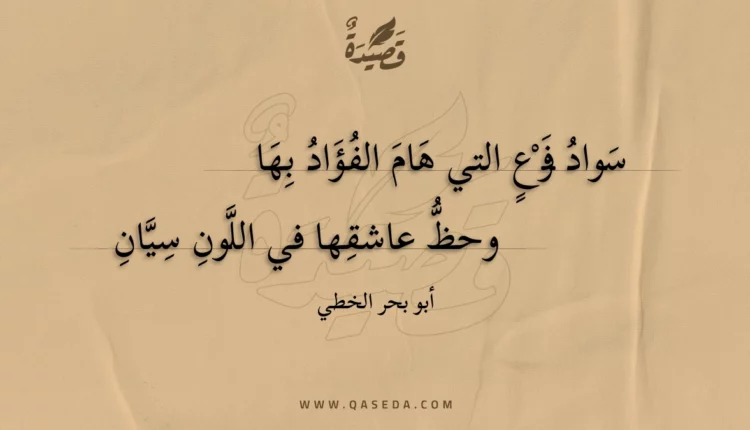 قَصِيْدَةٌ
سَوادُ فَرْعٍ التي هَامَ الفُؤَادُ بِهَا
وحظُّ عاشقِها في اللَّونِ سِيَّانِ
أبو بحر الخطي
WWW.QASEDA.COM